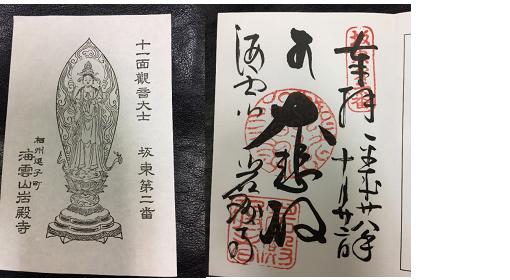 十一面觀音大士
坂東第二番
相州逗子町
海雲山岩殿寺
奉拝
平成廿八年
十月廿二日
大悲殿
海雲山
岩殿寺